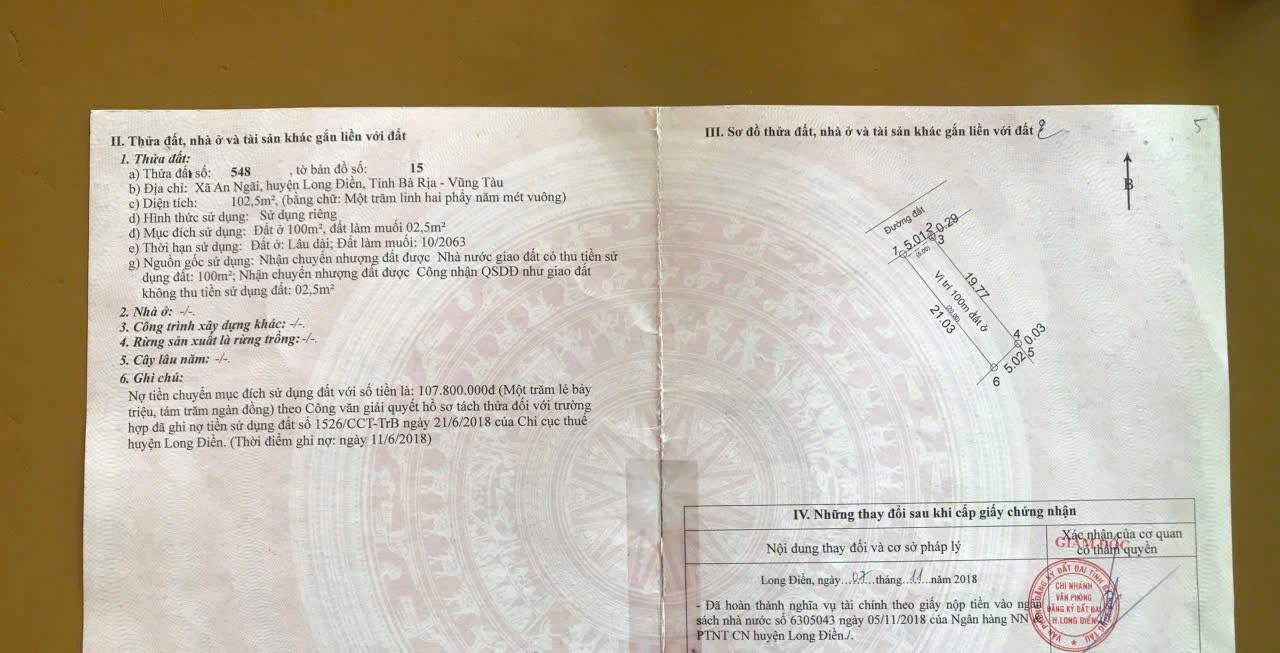 II. Thửa đất, nhà ở và tài sản khác gắn liền với đất
1. Thửa đất:
a) Thửa đất số: 548 , tờ bản đồ số: 15
b) Địa chỉ: Xã An Ngãi, huyện Long Điền, Tỉnh Bà Rịa - Vũng Tàu
c) Diện tích: 102,5m², (bằng chữ: Một trăm linh hai phẩy năm mét vuông)
d) Hình thức sử dụng: Sử dụng riêng
đ) Mục đích sử dụng: Đất ở 100m², đất làm muối 02,5m²
e) Thời hạn sử dụng: Đất ở: Lâu dài; Đất làm muối: 10/2063
g) Nguồn gốc sử dụng: Nhận chuyển nhượng đất được Nhà nước giao đất có thu tiền sử
dụng đất: 100m²; Nhận chuyển nhượng đất được Công nhận QSDĐ như giao đất
không thu tiền sử dụng đất: 02,5m²
2. Nhà ở: -/-.
3. Công trình xây dựng khác: -/-.
4. Rừng sản xuất là rừng trồng: -/-.
5. Cây lâu năm: -/-.
6. Ghi chú:
Nợ tiền chuyển mục đích sử dụng đất với số tiền là: 107.800.000đ (Một trăm lẻ bảy
triệu, tám trăm ngàn đồng) theo Công văn giải quyết hồ sơ tách thửa đối với trường
hợp đã ghi nợ tiền sử dụng đất số 1526/CCT-TrB ngày 21/6/2018 của Chi cục thuế
huyện Long Điền. (Thời điểm ghi nợ: ngày 11/6/2018)
III. Sơ đồ thửa đất, nhà ở và tài sản khác gắn liền với đất
5
B
Đường đất
1 5.01 2 0.29
(5.00) 3
19.77
Vị trí 100m đất ở
(20.00)
21.03
4 0.03
5.02 5
6
IV. Những thay đổi sau khi cấp giấy chứng nhận
Nội dung thay đổi và cơ sở pháp lý
Xác nhận của cơ quan
có thẩm quyền
GIÁM ĐỐC
Long Điền, ngày...07...tháng...11...năm 2018
- Đã hoàn thành nghĩa vụ tài chính theo giấy nộp tiền vào ngân
sách nhà nước số 6305043 ngày 05/11/2018 của Ngân hàng NN &
PTNT CN huyện Long Điền./.
CHI NHÁNH
VĂN PHÒNG
ĐĂNG KÝ ĐẤT ĐAI
H.LONG ĐIỀN